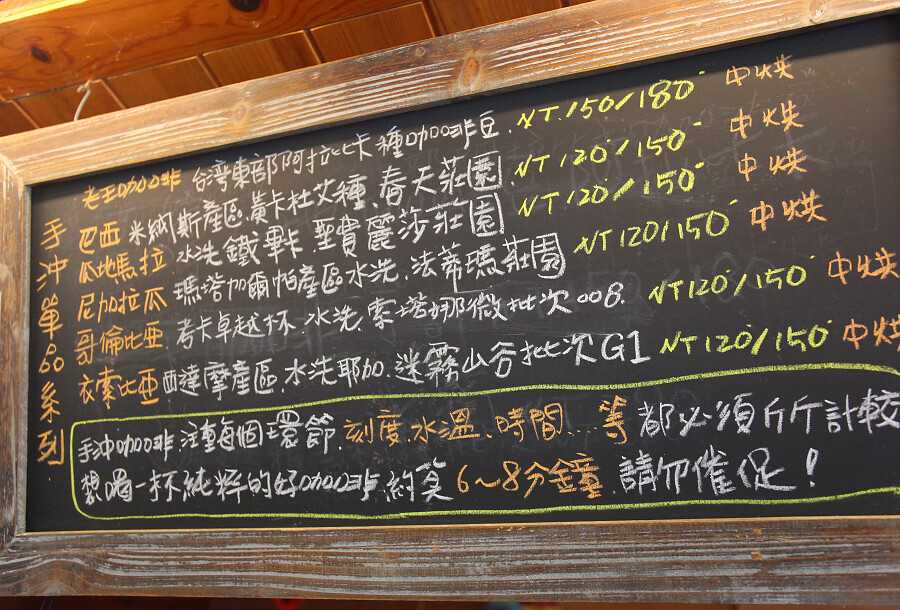 手沖單品系列
老王咖啡 台灣東部阿拉比卡種咖啡豆. NT.150/180 中烘
巴西 米納斯產區.黃卡杜艾種、春天莊園 NT120/150 中烘
瓜地馬拉 水洗 鐵畢卡 聖費麗莎莊園 NT120/150 中烘
尼加拉瓜 瑪塔加爾帕產區水洗.法蒂瑪莊園 NT120/150 中烘
哥倫比亞 考卡卓越杯.水洗.索塔娜微批次008. NT120/150 中烘
衣索比亞 西達摩產區.水洗耶加.迷霧山谷批次G1 NT120/150 中烘
手沖咖啡.注重每個環節.刻度.水溫、時間...等 都必須斤斤計較
想喝一杯純粹的好咖啡.約莫6~8分鐘.請勿催促!